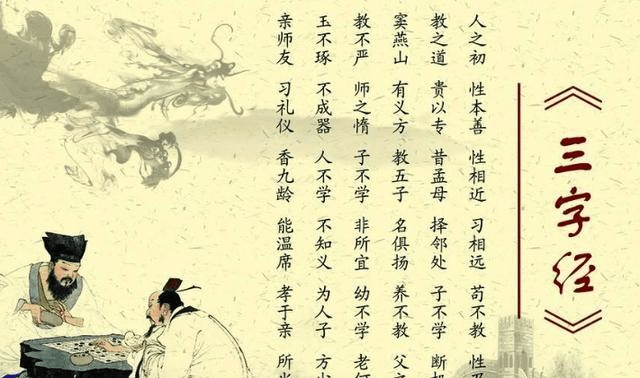 《三字经》
人之初 性本善 性相近 习相远 苟不教 性
教之道 贵以专 昔孟母 择邻处 子不学 断
窦燕山 有义方 教五子 名俱扬 养不教 父
教不严 师之惰 子不学 非所宜 幼不学 老
玉不琢 不成器 人不学 不知义 为人子 方
亲师友 习礼仪 香九龄 能温席 孝于亲 所